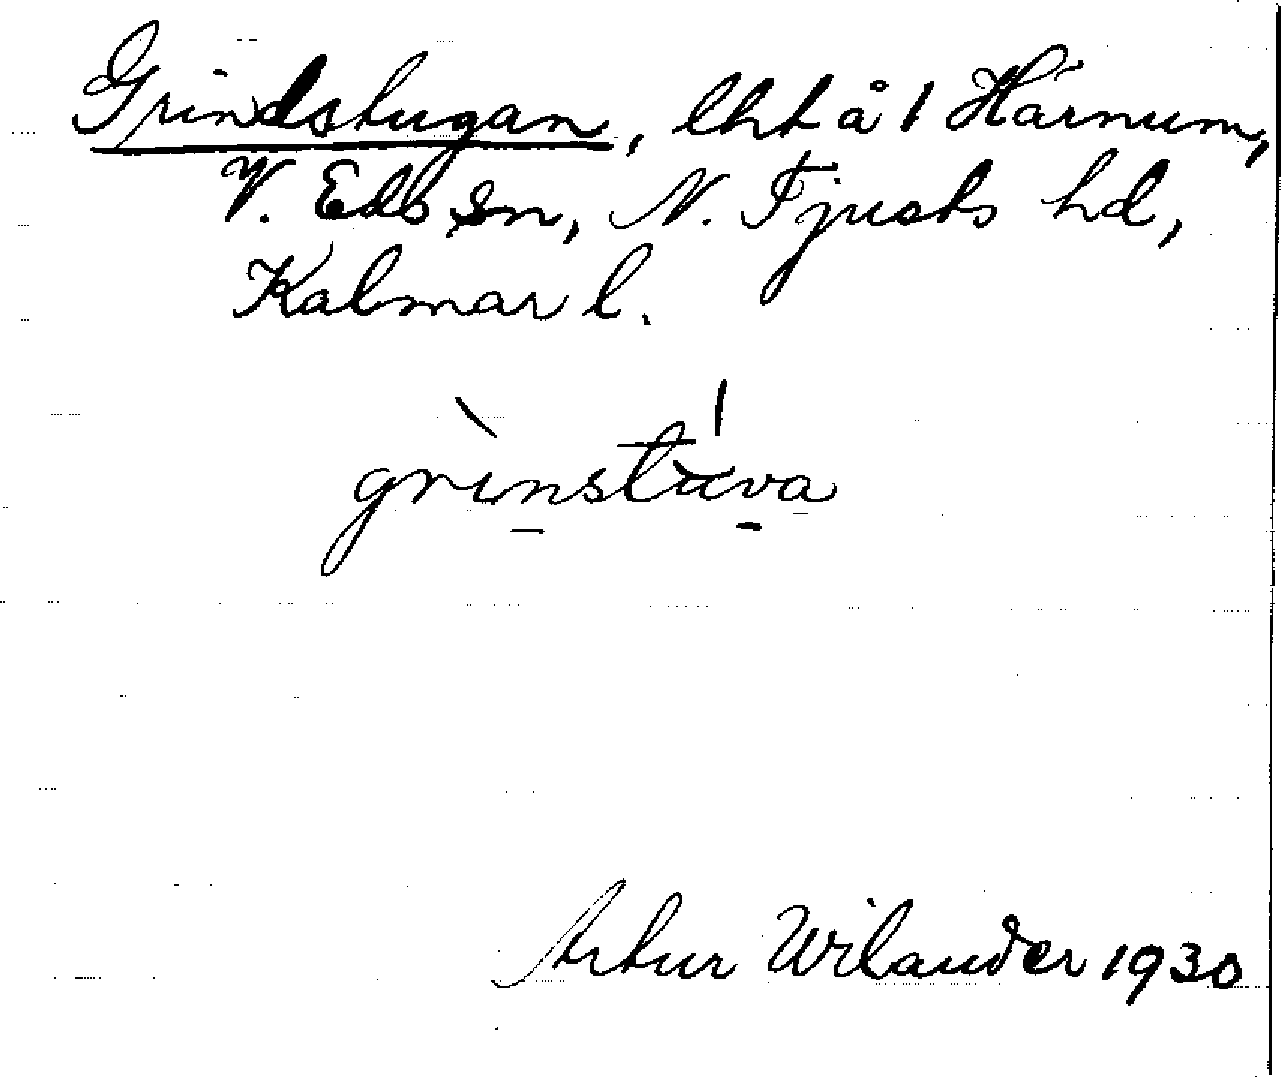 Grindstugan, lht å 1 Härnum,
V. Eds sn, N. Tjusts hd,
Kalmar l.
grìnstùva
Artur Wilander 1930